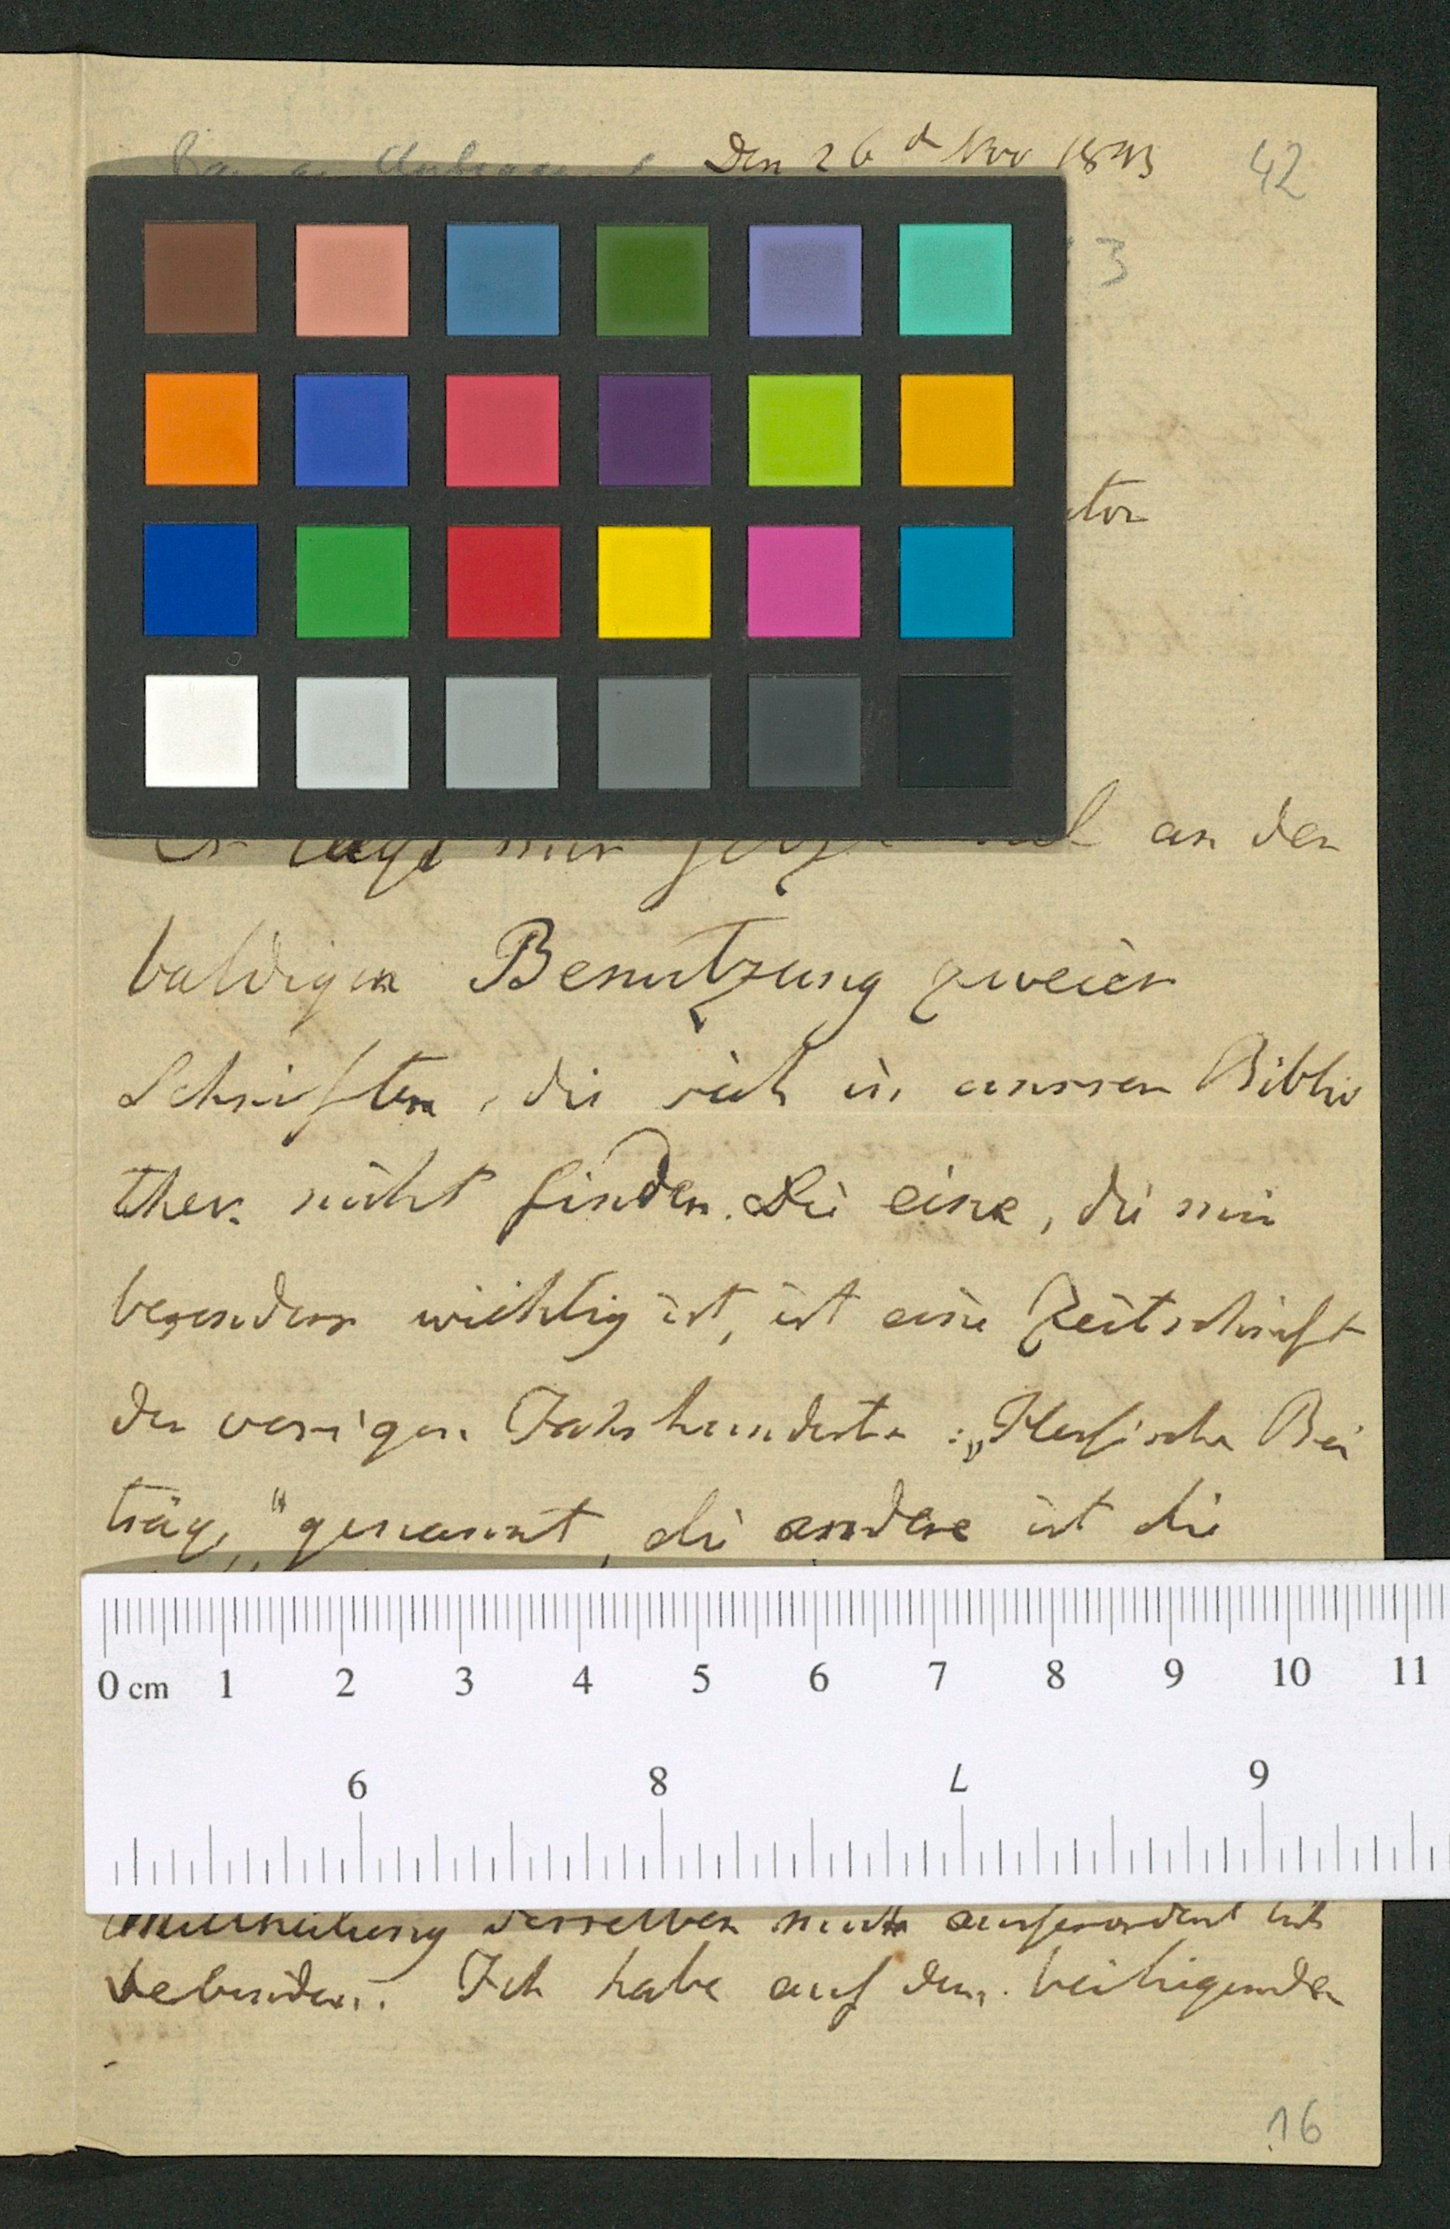 Den 26 d Nov 1893
42
3
an den
baldigen Benutzung zweier
Schriften, die sich in unsrer Biblio
thek nicht finden. Die eine, die mir
besonders wichtig ist, ist eine Zeitschrift
des vorigen Jahrhunderts: „Hessische Bei
träge" genannt, die andere ist die
0 cm 1 2 3 4 5 6 7 8 9 10 11
9 8 7 6
Mittheilung derselben mich ausserordentlich
verbinden. Ich habe auf dem beiliegenden
16